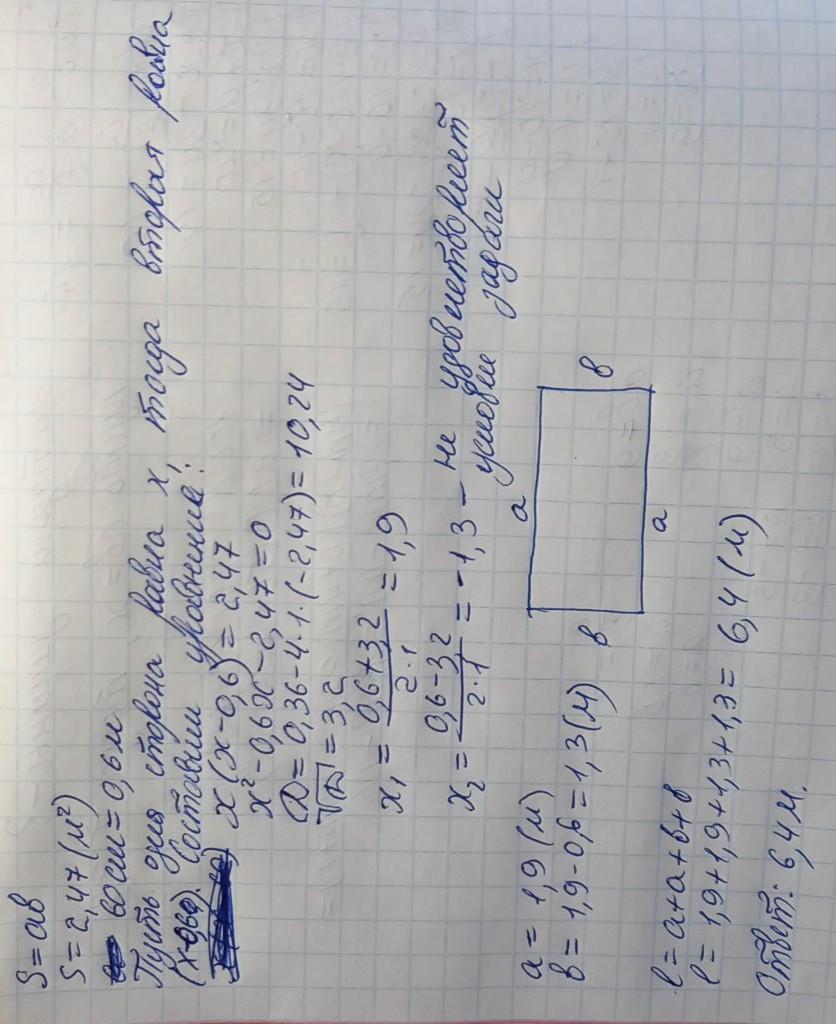 S = ав
S = 2,47 (м²)
60см = 0,6м
Пусть одна сторона равна х, тогда вторая равна
(х-0,6). Составим уравнение:
х(х-0,6) = 2,47
х² - 0,6х - 2,47 = 0
D = 0,36 - 4·1·(-2,47) = 10,24
√D = 3,2
х₁ = (0,6+3,2)/(2·1) = 1,9
х₂ = (0,6-3,2)/(2·1) = -1,3 - не удовлетворяет
условию задачи
а = 1,9 (м)
в = 1,9 - 0,6 = 1,3 (м)
а
в
в
а
ℓ = а+а+в+в
ℓ = 1,9+1,9+1,3+1,3 = 6,4 (м)
Ответ: 6,4 м.